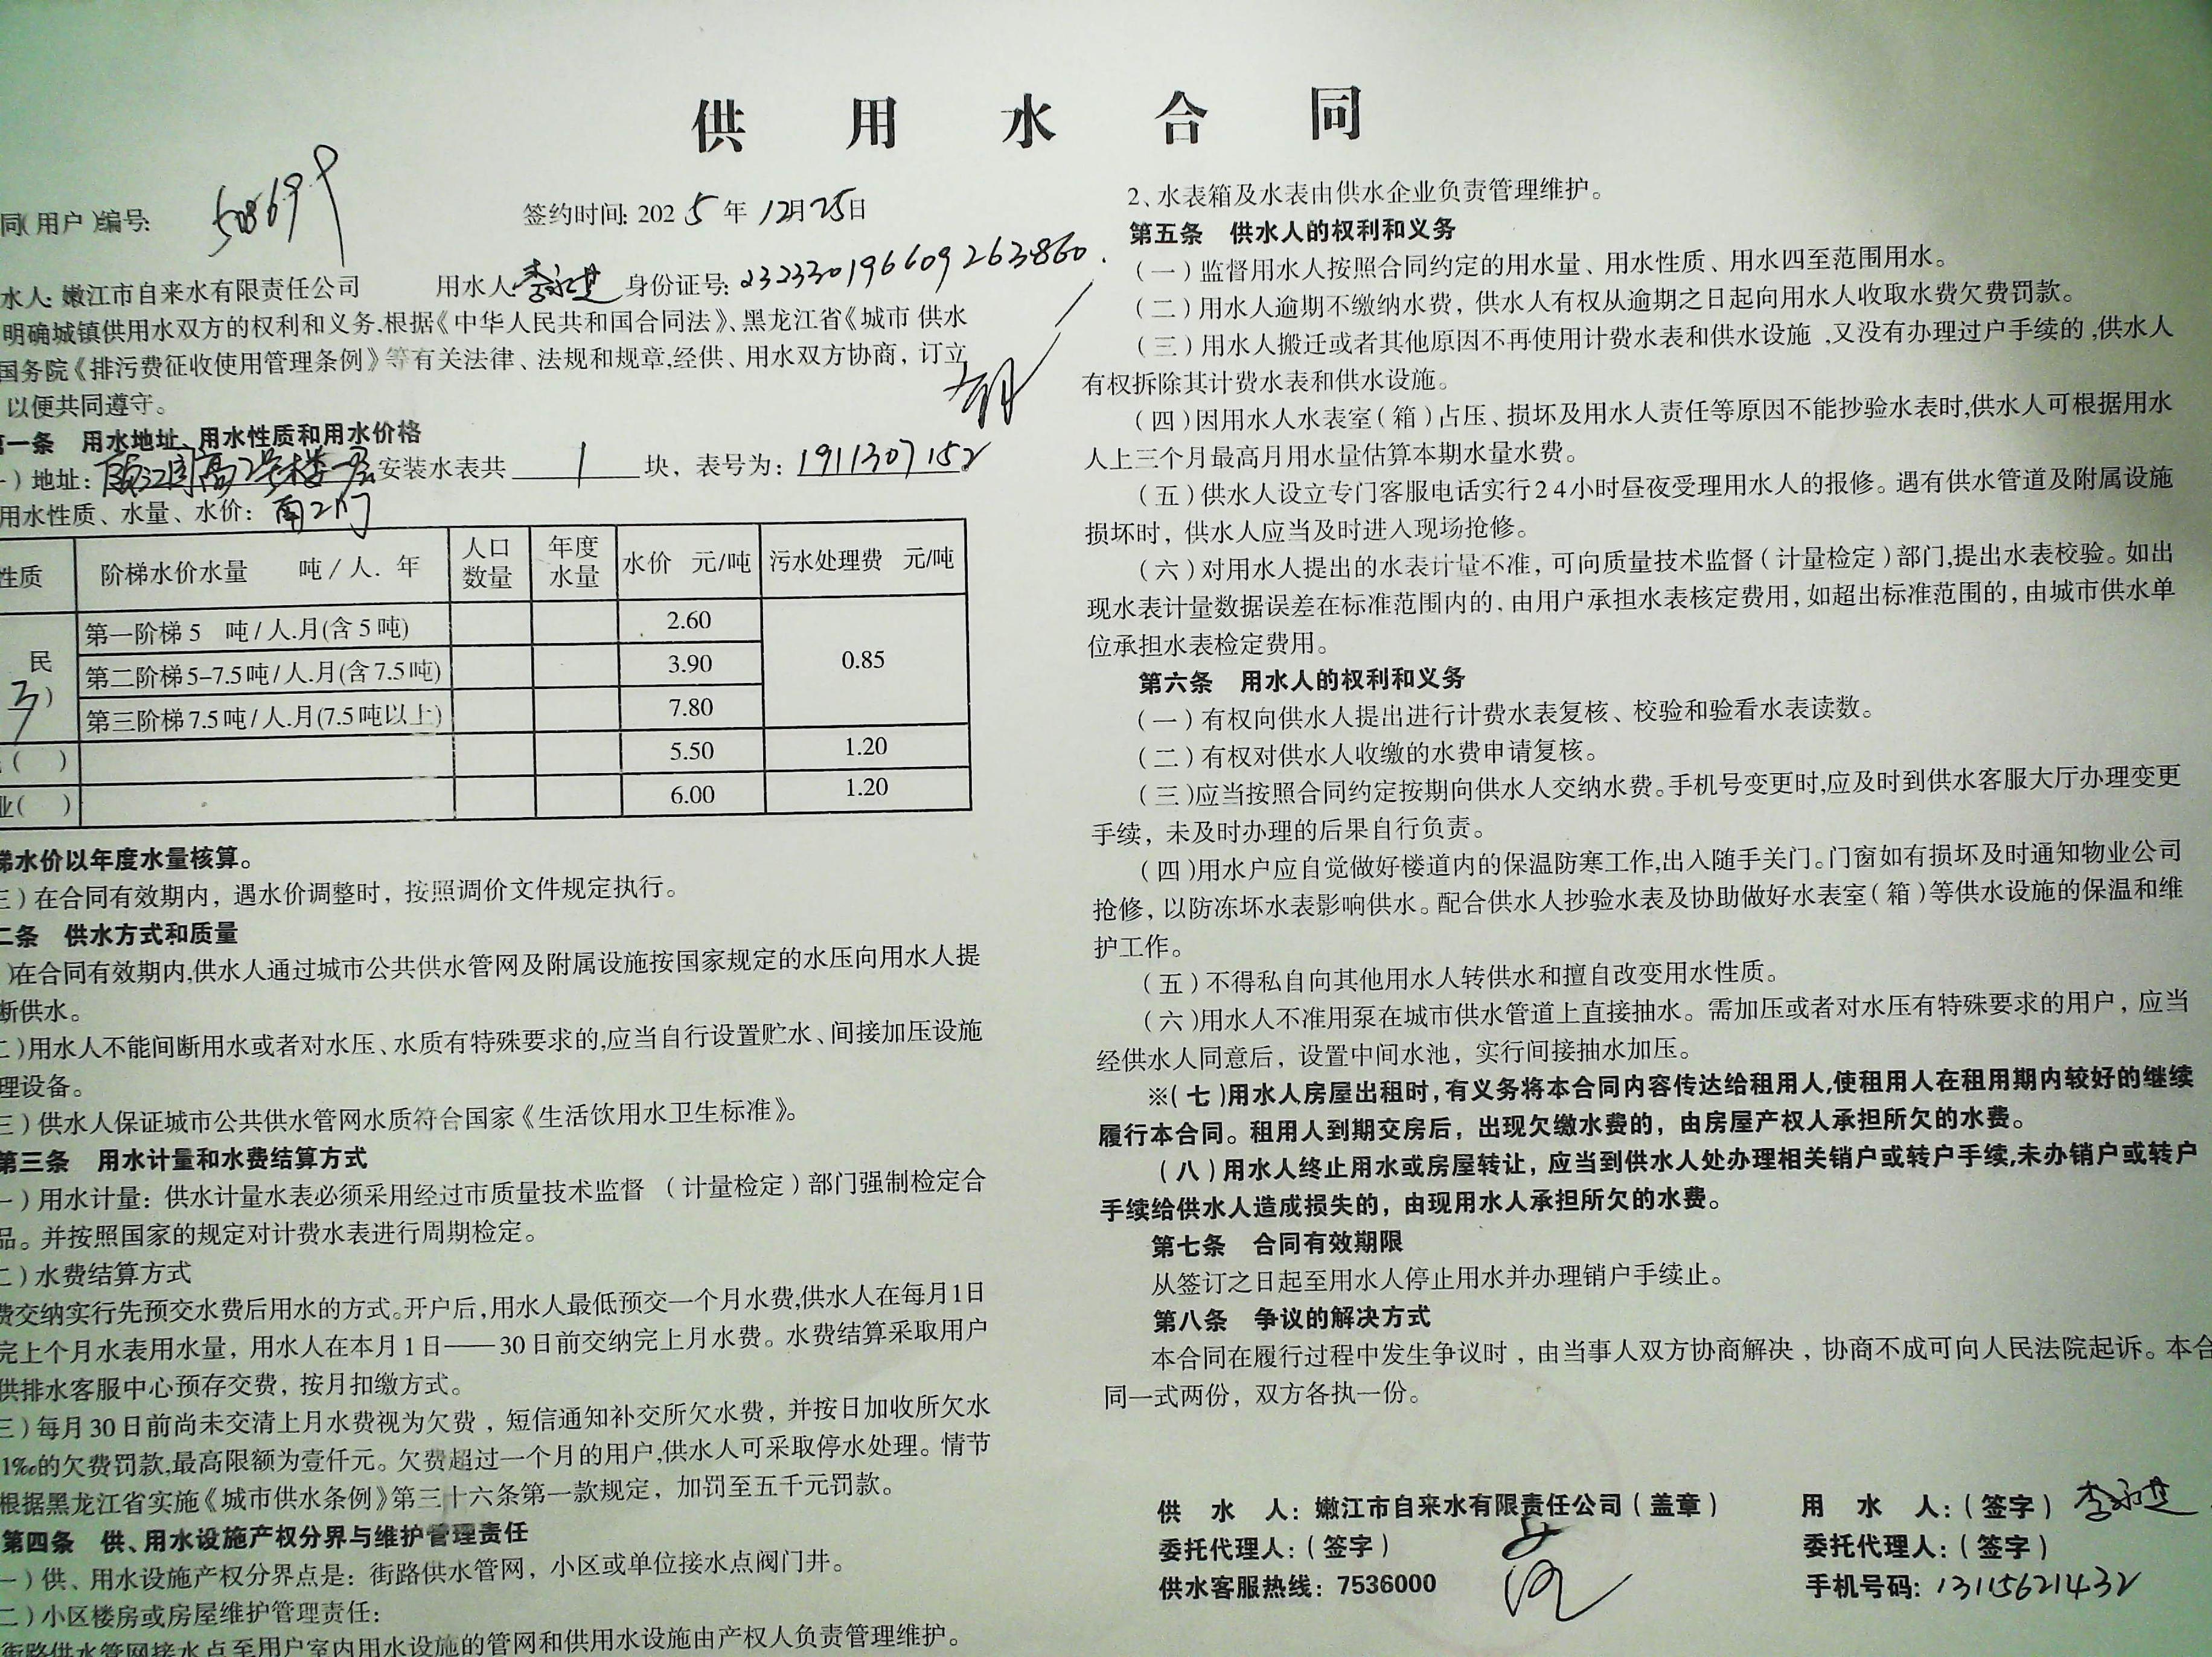 供用水合同
同(用户)编号:
签约时间: 2025年12月25日
水人: 嫩江市自来水有限责任公司 用水人: 李永进 身份证号: 232330196609263860
明确城镇供用水双方的权利和义务,根据《中华人民共和国合同法》、黑龙江省《城市供水
国务院《排污费征收使用管理条例》等有关法律、法规和规章,经供、用水双方协商，订立
以便共同遵守。
第一条 用水地址、用水性质和用水价格
一)地址: 2号楼 安装水表共 1 块，表号为: 1911307152
用水性质、水量、水价: 南2门
性质 阶梯水价水量 吨/人. 年 人口数量 年度水量 水价 元/吨 污水处理费 元/吨
民 第一阶梯 5 吨/人.月(含 5 吨) 2.60 0.85
第二阶梯 5-7.5吨/人.月(含 7.5吨) 3.90
第三阶梯 7.5 吨/人.月(7.5 吨以上) 7.80
( ) 5.50 1.20
业( ) 6.00 1.20
梯水价以年度水量核算。
三)在合同有效期内，遇水价调整时，按照调价文件规定执行。
二条 供水方式和质量
)在合同有效期内,供水人通过城市公共供水管网及附属设施按国家规定的水压向用水人提
断供水。
二)用水人不能间断用水或者对水压、水质有特殊要求的,应当自行设置贮水、间接加压设施
理设备。
三)供水人保证城市公共供水管网水质符合国家《生活饮用水卫生标准》。
第三条 用水计量和水费结算方式
一)用水计量：供水计量水表必须采用经过市质量技术监督（计量检定）部门强制检定合
品。并按照国家的规定对计费水表进行周期检定。
二)水费结算方式
费交纳实行先预交水费后用水的方式。开户后,用水人最低预交一个月水费,供水人在每月1日
完上个月水表用水量，用水人在本月 1 日——30 日前交纳完上月水费。水费结算采取用户
供排水客服中心预存交费，按月扣缴方式。
三)每月 30 日前尚未交清上月水费视为欠费，短信通知补交所欠水费，并按日加收所欠水
1‰的欠费罚款,最高限额为壹仟元。欠费超过一个月的用户,供水人可采取停水处理。情节
根据黑龙江省实施《城市供水条例》第三十六条第一款规定，加罚至五千元罚款。
第四条 供、用水设施产权分界与维护管理责任
一)供、用水设施产权分界点是：街路供水管网，小区或单位接水点阀门井。
二)小区楼房或房屋维护管理责任：
街路供水管网接水点至用户室内用水设施的管网和供用水设施由产权人负责管理维护。
2、水表箱及水表由供水企业负责管理维护。
第五条 供水人的权利和义务
(一)监督用水人按照合同约定的用水量、用水性质、用水四至范围用水。
(二)用水人逾期不缴纳水费，供水人有权从逾期之日起向用水人收取水费欠费罚款。
(三)用水人搬迁或者其他原因不再使用计费水表和供水设施,又没有办理过户手续的,供水人
有权拆除其计费水表和供水设施。
(四)因用水人水表室(箱)占压、损坏及用水人责任等原因不能抄验水表时,供水人可根据用水
人上三个月最高月用水量估算本期水量水费。
(五)供水人设立专门客服电话实行24小时昼夜受理用水人的报修。遇有供水管道及附属设施
损坏时，供水人应当及时进入现场抢修。
(六)对用水人提出的水表计量不准，可向质量技术监督(计量检定)部门,提出水表校验。如出
现水表计量数据误差在标准范围内的，由用户承担水表核定费用，如超出标准范围的，由城市供水单
位承担水表检定费用。
第六条 用水人的权利和义务
(一)有权向供水人提出进行计费水表复核、校验和验看水表读数。
(二)有权对供水人收缴的水费申请复核。
(三)应当按照合同约定按期向供水人交纳水费。手机号变更时,应及时到供水客服大厅办理变更
手续，未及时办理的后果自行负责。
(四)用水户应自觉做好楼道内的保温防寒工作,出入随手关门。门窗如有损坏及时通知物业公司
抢修，以防冻坏水表影响供水。配合供水人抄验水表及协助做好水表室(箱)等供水设施的保温和维
护工作。
(五)不得私自向其他用水人转供水和擅自改变用水性质。
(六)用水人不准用泵在城市供水管道上直接抽水。需加压或者对水压有特殊要求的用户，应当
经供水人同意后，设置中间水池，实行间接抽水加压。
※(七)用水人房屋出租时，有义务将本合同内容传达给租用人,使租用人在租用期内较好的继续
履行本合同。租用人到期交房后，出现欠缴水费的，由房屋产权人承担所欠的水费。
(八)用水人终止用水或房屋转让，应当到供水人处办理相关销户或转户手续,未办销户或转户
手续给供水人造成损失的，由现用水人承担所欠的水费。
第七条 合同有效期限
从签订之日起至用水人停止用水并办理销户手续止。
第八条 争议的解决方式
本合同在履行过程中发生争议时，由当事人双方协商解决，协商不成可向人民法院起诉。本合
同一式两份，双方各执一份。
供 水 人：嫩江市自来水有限责任公司(盖章) 用 水 人：(签字) 李永进
委托代理人：(签字) 委托代理人：(签字)
供水客服热线：7536000 手机号码: 13115621432